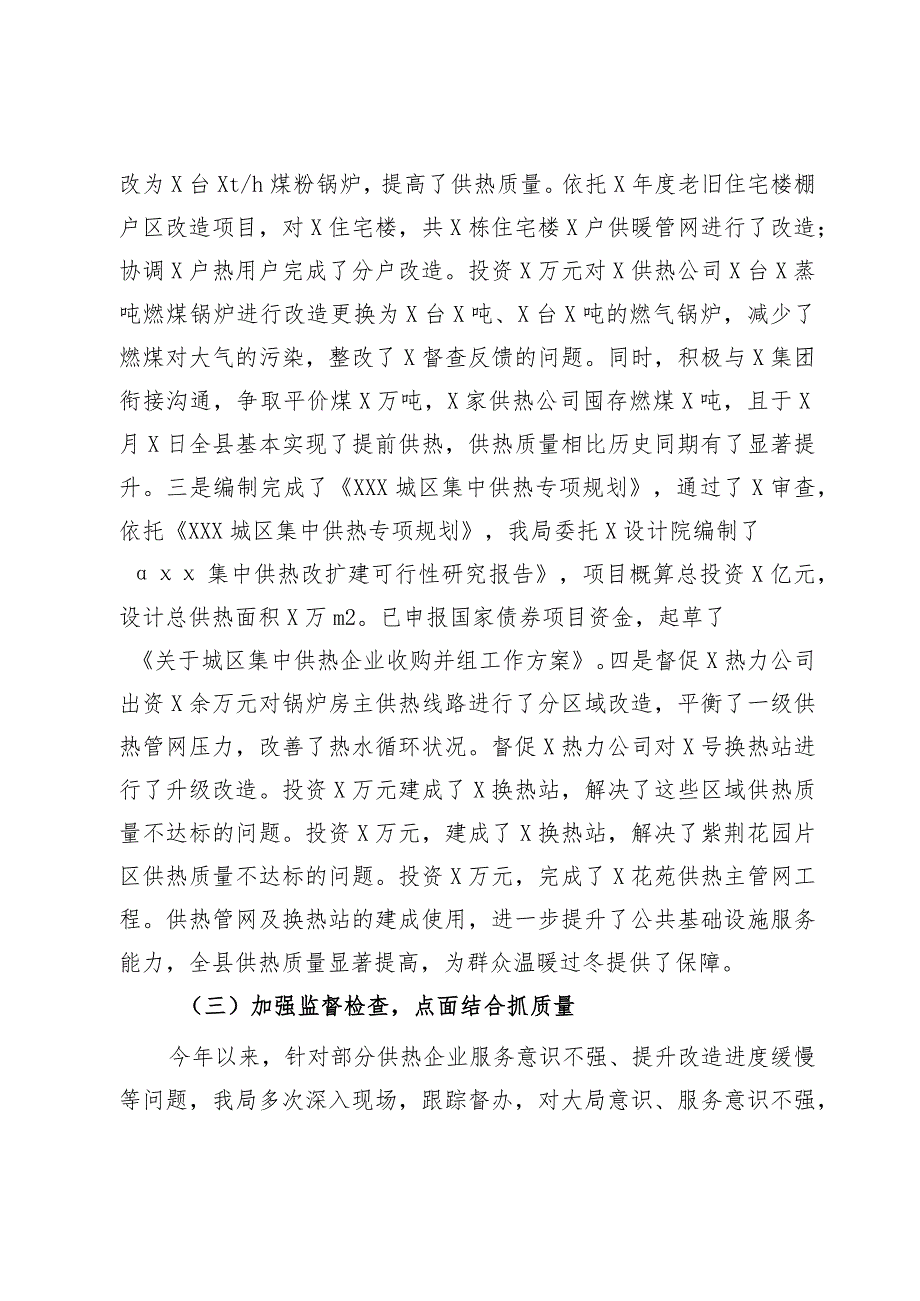 改为X台Xt/h煤粉锅炉，提高了供热质量。依托X年度老旧住宅楼棚
户区改造项目，对X住宅楼，共X栋住宅楼X户供暖管网进行了改造；
协调X户热用户完成了分户改造。投资X万元对X供热公司X台X蒸
吨燃煤锅炉进行改造更换为X台X吨、X台X吨的燃气锅炉，减少了
燃煤对大气的污染，整改了X督查反馈的问题。同时，积极与X集团
衔接沟通，争取平价煤X万吨，X家供热公司囤存燃煤X吨，且于X
月X日全县基本实现了提前供热，供热质量相比历史同期有了显著提
升。三是编制完成了《XXX城区集中供热专项规划》，通过了X审查，
依托《XXX城区集中供热专项规划》，我局委托X设计院编制了
αxx集中供热改扩建可行性研究报告》，项目概算总投资X亿元，
设计总供热面积X万m2。已申报国家债券项目资金，起草了
《关于城区集中供热企业收购并组工作方案》。四是督促X热力公司
出资X余万元对锅炉房主供热线路进行了分区域改造，平衡了一级供
热管网压力，改善了热水循环状况。督促X热力公司对X号换热站进
行了升级改造。投资X万元建成了X换热站，解决了这些区域供热质
量不达标的问题。投资X万元，建成了X换热站，解决了紫荆花园片
区供热质量不达标的问题。投资X万元，完成了X花苑供热主管网工
程。供热管网及换热站的建成使用，进一步提升了公共基础设施服务
能力，全县供热质量显著提高，为群众温暖过冬提供了保障。
（三）加强监督检查，点面结合抓质量
今年以来，针对部分供热企业服务意识不强、提升改造进度缓慢
等问题，我局多次深入现场，跟踪督办，对大局意识、服务意识不强，